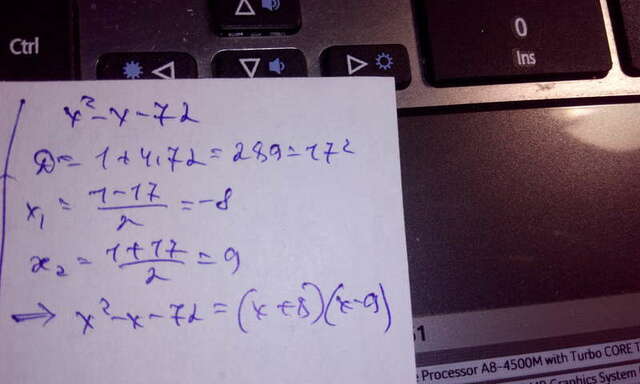 Ctrl
0
Ins
x² - x - 72
D = 1 + 4·72 = 289 = 17²
x₁ = (1-17)/2 = -8
x₂ = (1+17)/2 = 9
⇒ x² - x - 72 = (x+8)(x-9)
Processor A8-4500M with Turbo CORE T
Graphics System